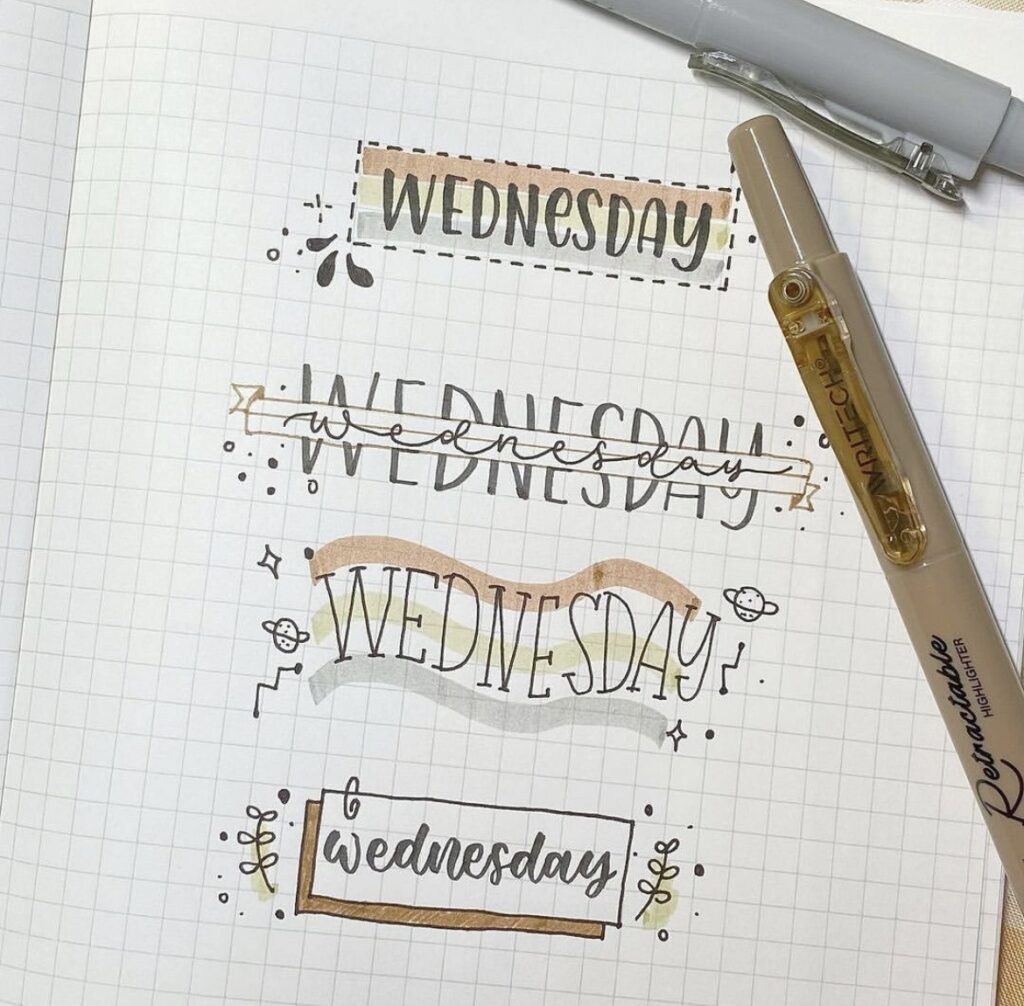 WEDNeSDAY
WEDNESDAY
wednesday
WEDNESDAY
wednesday
WRITECH®
Retractable
HIGHLIGHTER